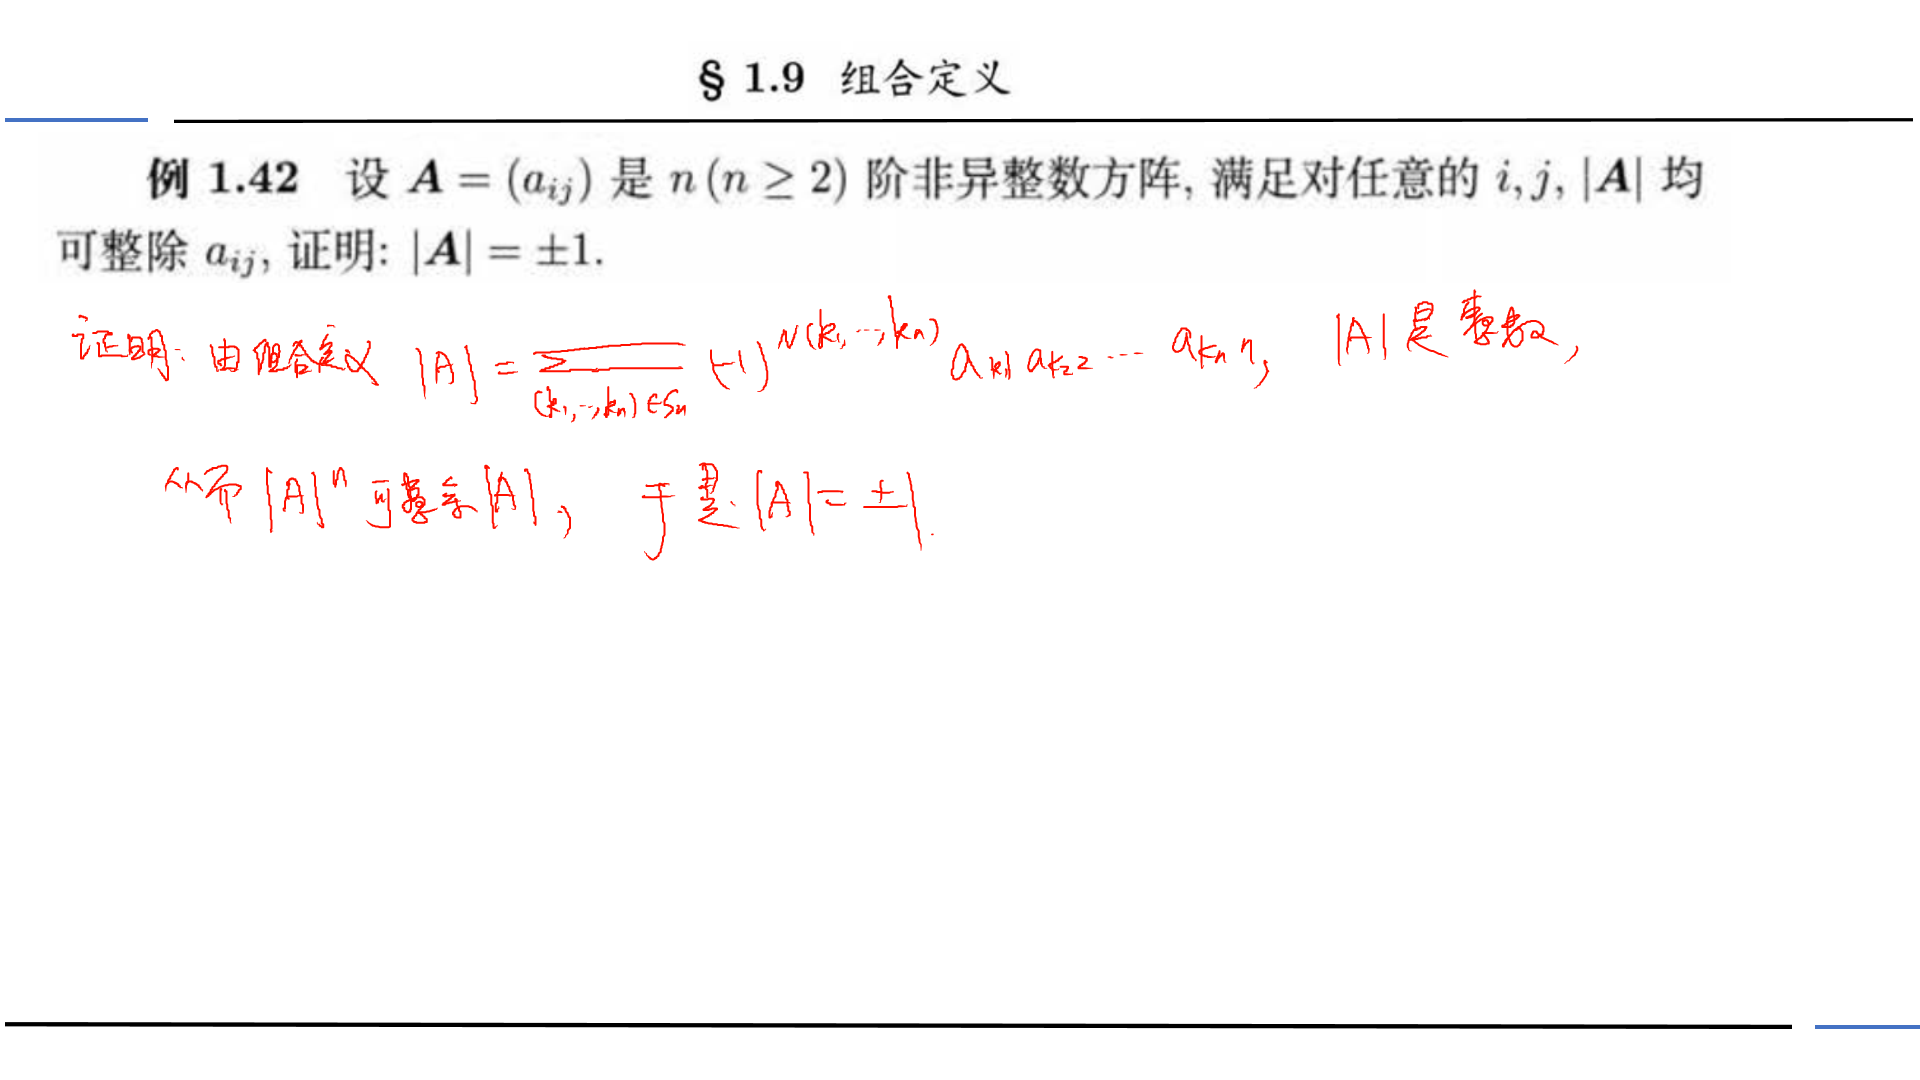 § 1.9 组合定义
例 1.42 设 A = (a_{ij}) 是 n (n ≥ 2) 阶非异整数方阵, 满足对任意的 i, j, |A| 均
可整除 a_{ij}, 证明: |A| = ±1.
证明: 由组合定义 |A| = Σ_{(k₁,…,kₙ)∈Sₙ} (-1)^{N(k₁,…,kₙ)} a_{k₁1} a_{k₂2} … a_{kₙn}, |A| 是整数,
从而 |A|ⁿ 可整除 |A|, 于是 |A| = ±1.